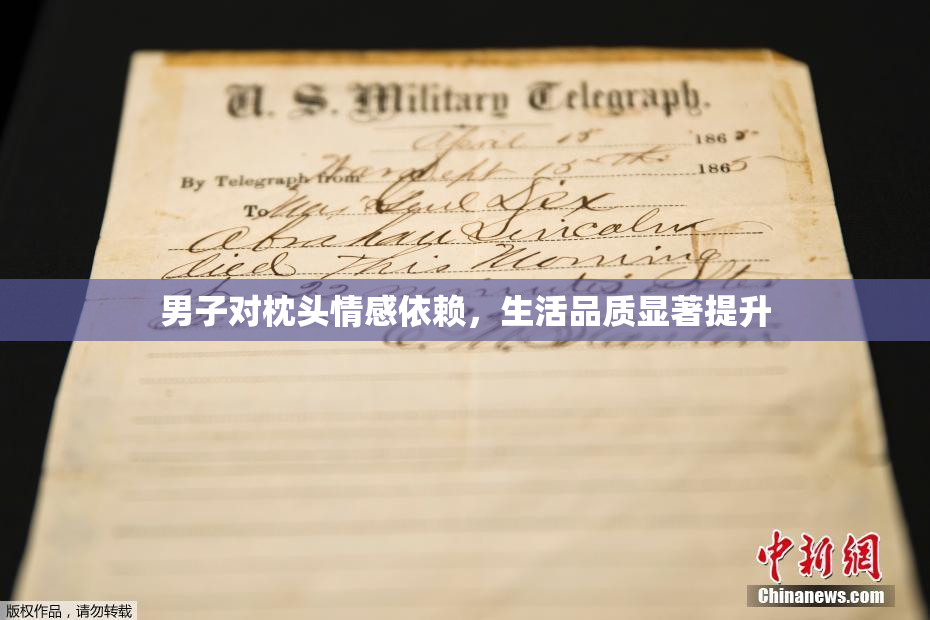 U. S. Military Telegraph.
April 15 1865
By Telegraph from War Dept 15th 1865
To Maj Genl Dix
Abraham Lincoln
died This Morning
at 22 minutes after
男子对枕头情感依赖，生活品质显著提升
Stanton
中新网
Chinanews.com
版权作品，请勿转载